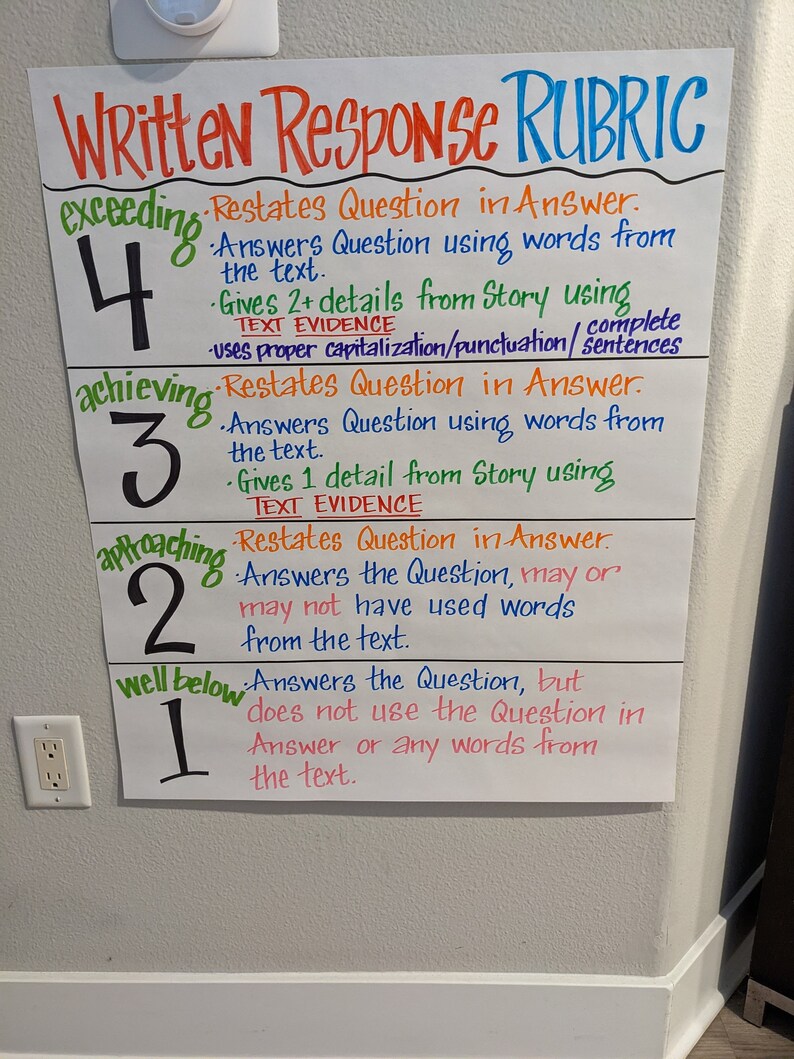 Written Response Rubric
exceeding
4
·Restates Question in Answer.
·Answers Question using words from
the text.
·Gives 2+ details from Story using
TEXT EVIDENCE
·uses proper capitalization/punctuation/complete sentences
achieving
3
·Restates Question in Answer.
·Answers Question using words from
the text.
·Gives 1 detail from Story using
TEXT EVIDENCE
approaching
2
·Restates Question in Answer.
·Answers the Question, may or
may not have used words
from the text.
well below
1
·Answers the Question, but
does not use the Question in
Answer or any words from
the text.